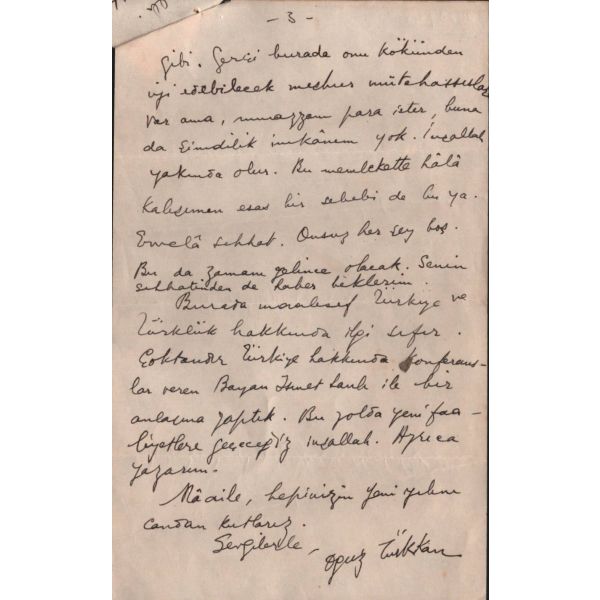 - 3 -
gibi. Gerçi burada onu kökünden
iyi edebilecek meşhur mütehassıslar
var ama, muazzam para ister, buna
da şimdilik imkânım yok. İnşallah
yakında olur. Bu memlekette hâlâ
kalışımın esas bir sebebi de bu ya.
Evvelâ sıhhat. Onsuz her şey boş.
Bu da zamanı gelince olacak. Senin
sıhhatinden de haber beklerim.
Burada maalesef Türkiye ve
Türklük hakkında ilgi sıfır.
Çoktandır Türkiye hakkında konferans-
lar veren Bayan İsmet Sanlı ile bir
anlaşma yaptık. Bu yolda yeni faa-
liyetlere geçeceğiz inşallah. Ayrıca
yazarım.
Mâaile, hepinizin yeni yılını
candan kutlarız.
Sevgilerle,
Oğuz Türkkan